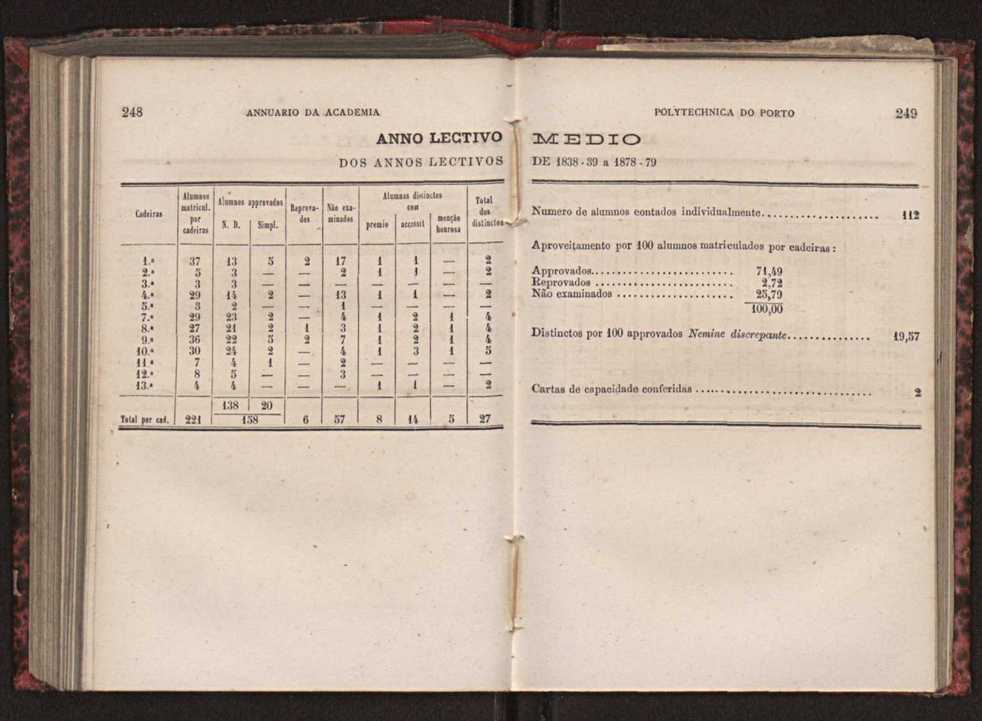 248 ANNUARIO DA ACADEMIA
ANNO LECTIVO
DOS ANNOS LECTIVOS
Cadeiras | Alumnos matricul. por cadeiras | Alumnos approvados | Reprova-dos | Não exa-minados | Alumnos distinctos com | Total dos distinctos
N. D. | Simpl. | premio | accessit | menção honrosa
1.ª 37 13 5 2 17 1 1 — 2
2.ª 5 3 — — 2 1 1 — 2
3.ª 3 3 — — — — — — —
4.ª 29 14 2 — 13 1 1 — 2
5.ª 3 2 — — 1 — — — —
7.ª 29 23 2 — 4 1 2 1 4
8.ª 27 21 2 1 3 1 2 1 4
9.ª 36 22 5 2 7 1 2 1 4
10.ª 30 24 2 — 4 1 3 1 5
11.ª 7 4 1 — 2 — — — —
12.ª 8 5 — — 3 — — — —
13.ª 4 4 — — — 1 1 — 2
138 20
Total per cad. 221 158 6 57 8 14 5 27
POLYTECHNICA DO PORTO 249
MEDIO
DE 1838-39 a 1878-79
Numero de alumnos contados individualmente.................... 112
Aproveitamento por 100 alumnos matriculados por cadeiras:
Approvados......................... 71,49
Reprovados ........................ 2,72
Não examinados .................... 25,79
100,00
Distinctos por 100 approvados Nemine discrepante............... 19,57
Cartas de capacidade conferidas .............................. 2